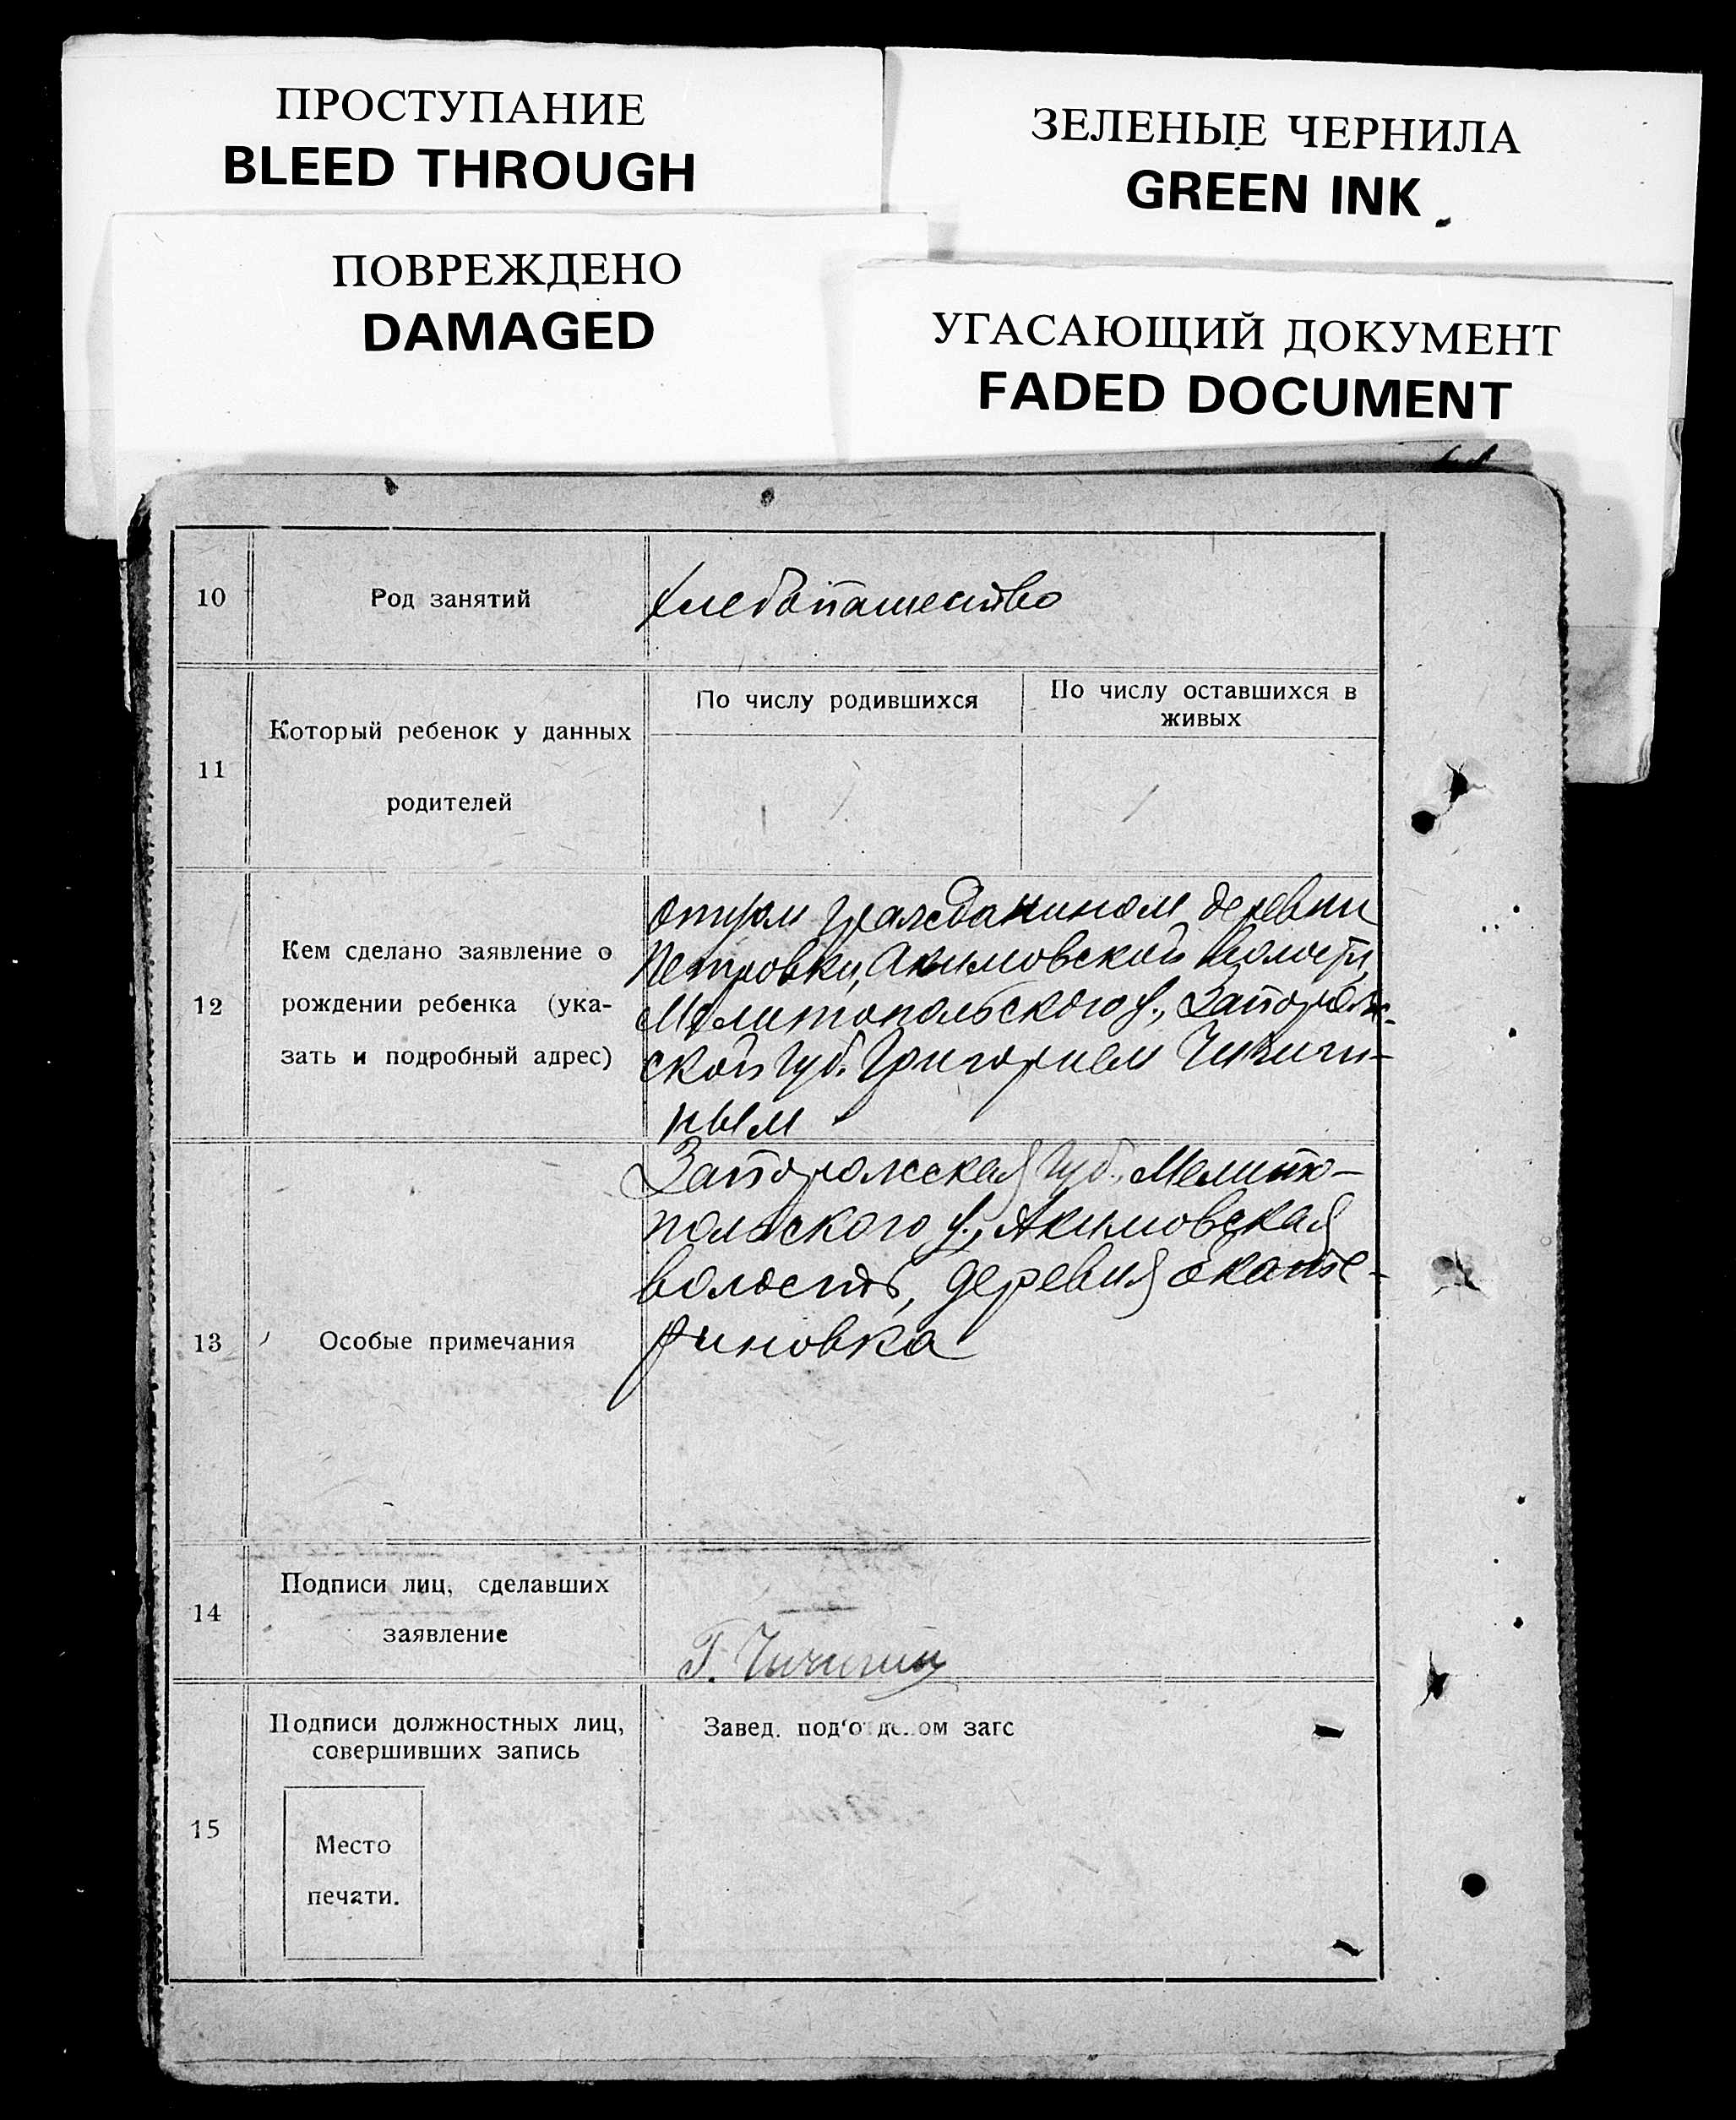 ПРОСТУПАНИЕ
BLEED THROUGH
ЗЕЛЕНЫЕ ЧЕРНИЛА
GREEN INK
ПОВРЕЖДЕНО
DAMAGED
УГАСАЮЩИЙ ДОКУМЕНТ
FADED DOCUMENT
10
Род занятий
хлебопашество
11
Который ребенок у данных
родителей
По числу родившихся
По числу оставшихся в
живых
1
1
12
Кем сделано заявление о
рождении ребенка (ука-
зать и подробный адрес)
отцом гражданином деревни
Петровки, Акимовской волости,
Мелитопольского у., Запорож-
ской губ. Григорием Чичиги-
ным
13
Особые примечания
Запорожская губ., Мелито-
польского у., Акимовская
волость, деревня Екате-
риновка
14
Подписи лиц, сделавших
заявление
Г. Чичигин
15
Подписи должностных лиц,
совершивших запись
Место
печати.
Завед. под'отделом загс